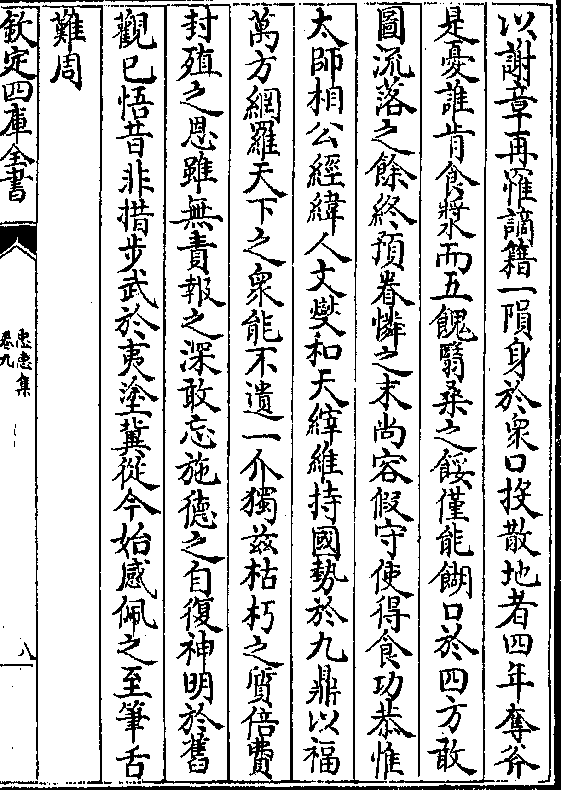 以謝章再罹謫籍一隕身於衆口投散地者四年奪斧
是憂誰肯食漿而五餽翳桑之餒僅能餬口於四方敢
圖流落之餘終預眷憐之末尚容假守使得食功恭惟
太師相公經緯人文爕和天縡維持國勢於九鼎以福
萬方網羅天下之衆能不遺一介獨兹枯朽之質倍費
封殖之恩雖無責報之深敢忘施德之自復神明於舊
觀已悟昔非措步武於夷塗冀從今始感佩之至筆舌
難周
欽定四庫全書
忠惠集
卷九
八